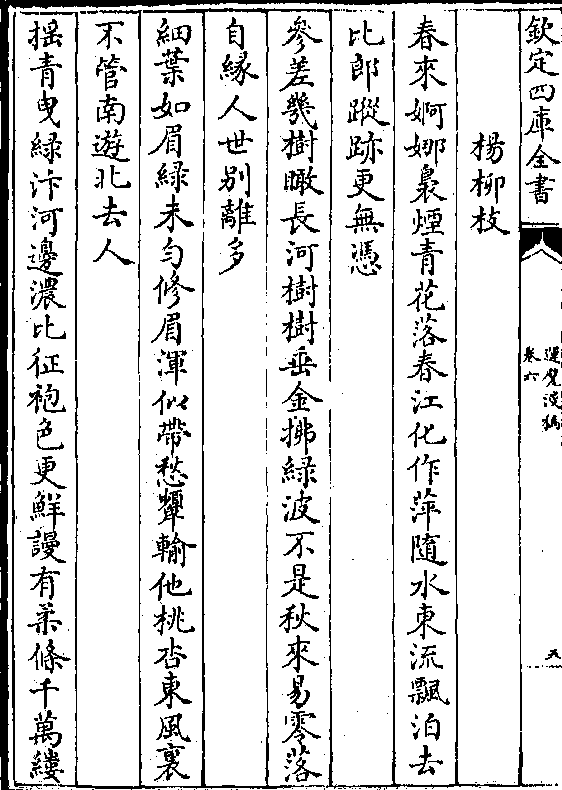 欽定四庫全書
卷六
五
楊柳枝
春來婀娜裊煙青花落春江化作萍隨水東流飄泊去
比郎蹤跡更無憑
參差幾樹瞰長河樹樹垂金拂綠波不是秋來易零落
自緣人世别離多
細葉如眉綠未勻修眉渾似帶愁顰輸他桃杏東風裏
不管南遊北去人
揺青曳綠汴河邊濃比征袍色更鮮謾有柔條千萬縷